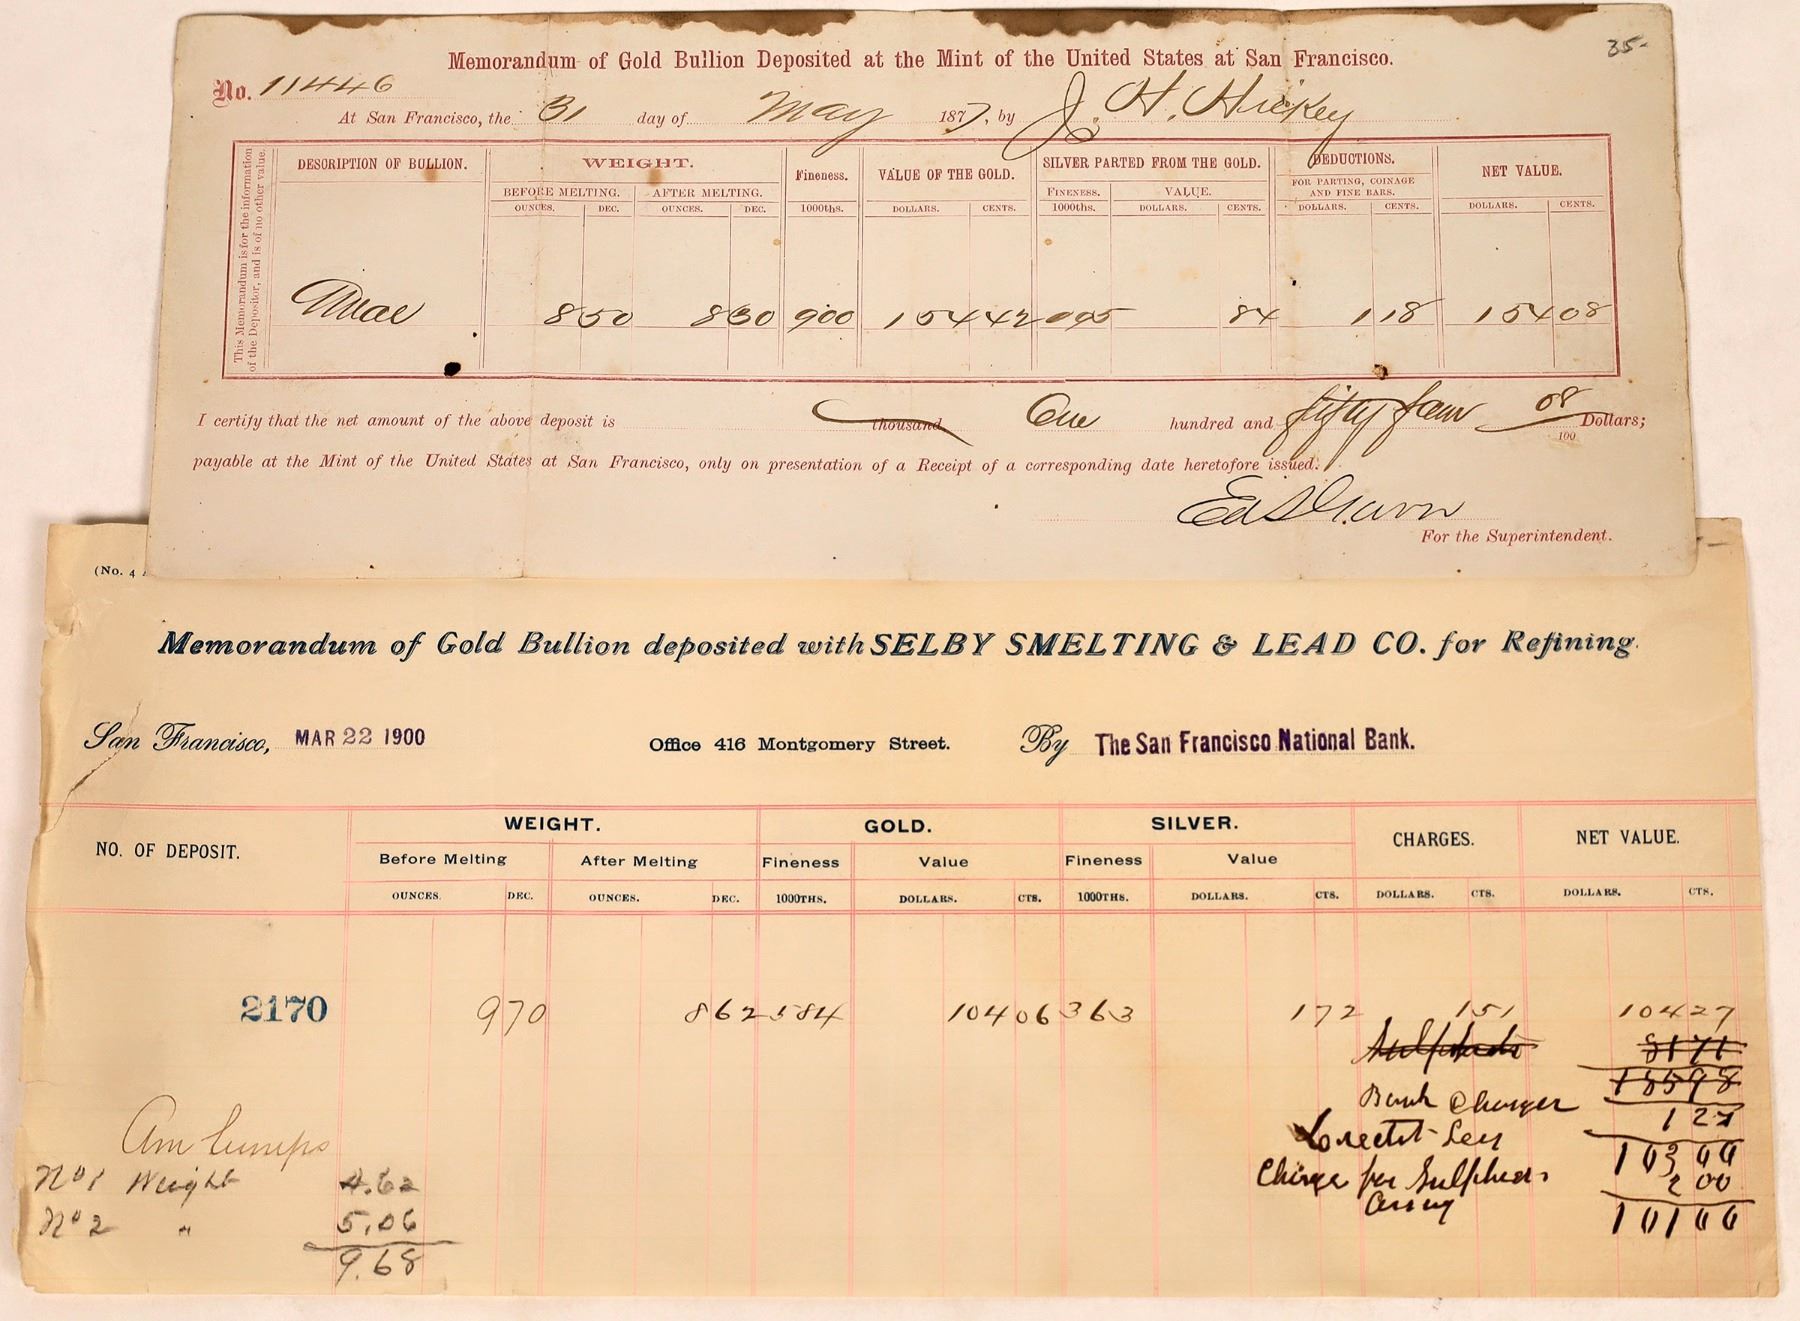 35-
Memorandum of Gold Bullion Deposited at the Mint of the United States at San Francisco.
No. 11446
At San Francisco, the 31 day of May 1877, by J. H. Hickey
This Memorandum is for the information
of the Depositor, and is of no other value.
DESCRIPTION OF BULLION. WEIGHT. Fineness. VALUE OF THE GOLD. SILVER PARTED FROM THE GOLD. DEDUCTIONS. NET VALUE.
BEFORE MELTING. AFTER MELTING. FINENESS. VALUE. FOR PARTING, COINAGE AND FINE BARS.
OUNCES. DEC. OUNCES. DEC. 1000ths. DOLLARS. CENTS. 1000ths. DOLLARS. CENTS. DOLLARS. CENTS. DOLLARS. CENTS.
8 50 8 30 900 154 42 095 84 1 18 154 08
I certify that the net amount of the above deposit is thousand One hundred and fifty four 08/100 Dollars;
payable at the Mint of the United States at San Francisco, only on presentation of a Receipt of a corresponding date heretofore issued.
For the Superintendent.
(No. 4
Memorandum of Gold Bullion deposited with SELBY SMELTING & LEAD CO. for Refining.
San Francisco, MAR 22 1900 Office 416 Montgomery Street. By The San Francisco National Bank.
NO. OF DEPOSIT. WEIGHT. GOLD. SILVER. CHARGES. NET VALUE.
Before Melting After Melting Fineness Value Fineness Value
OUNCES. DEC. OUNCES. DEC. 1000THS. DOLLARS. CTS. 1000THS. DOLLARS. CTS. DOLLARS. CTS. DOLLARS. CTS.
2170 9 70 8 62 584 104 06 363 1 72 1 51 104 27
Sulphurets 8171
18598
Bank Charges 1 27
103 00
Charge for Sulphurets 2 00
assay
101 00
Am lumps
No 1 Weight 4.62
No 2 " 5.06
9.68